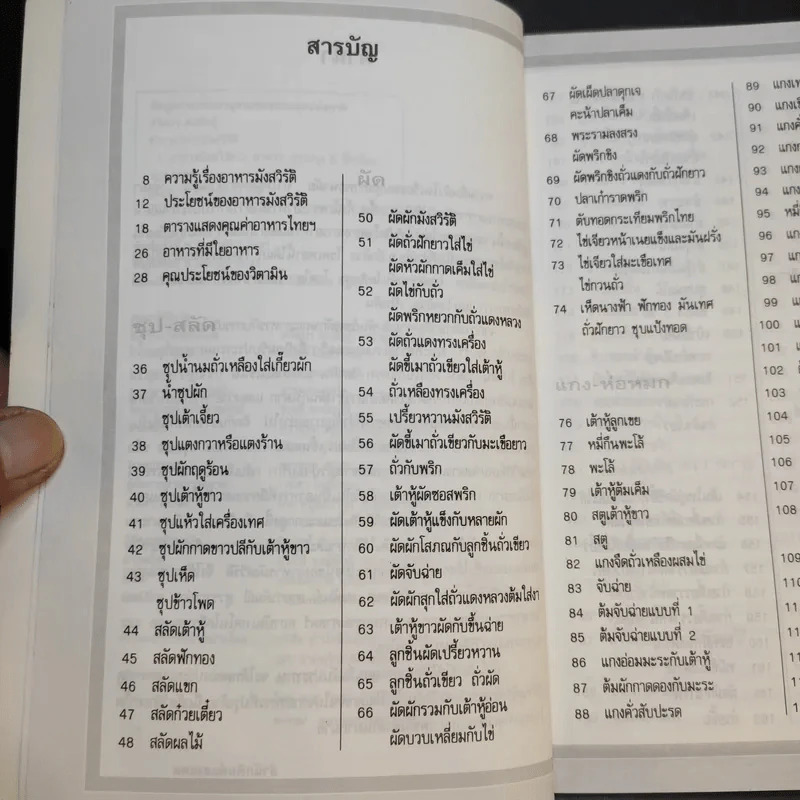 สารบัญ
8 ความรู้เรื่องอาหารมังสวิรัติ
12 ประโยชน์ของอาหารมังสวิรัติ
18 ตารางแสดงคุณค่าอาหารไทยฯ
26 อาหารที่มีใยอาหาร
28 คุณประโยชน์ของวิตามิน
ซุป-สลัด
36 ซุปน้ำนมถั่วเหลืองใส่เกี๊ยวผัก
37 น้ำซุปผัก
ซุปเต้าเจี้ยว
38 ซุปแตงกวาหรือแตงร้าน
39 ซุปผักฤดูร้อน
40 ซุปเต้าหู้ขาว
41 ซุปแห้วใส่เครื่องเทศ
42 ซุปผักกาดขาวปลีกับเต้าหู้ขาว
43 ซุปเห็ด
ซุปข้าวโพด
44 สลัดเต้าหู้
45 สลัดฟักทอง
46 สลัดแขก
47 สลัดก๋วยเตี๋ยว
48 สลัดผลไม้
ผัด
50 ผัดผักมังสวิรัติ
51 ผัดถั่วฝักยาวใส่ไข่
ผัดหัวผักกาดเค็มใส่ไข่
52 ผัดไข่กับถั่ว
ผัดพริกหยวกกับถั่วแดงหลวง
53 ผัดถั่วแดงทรงเครื่อง
ผัดขี้เมาถั่วเขียวใส่เต้าหู้
54 ถั่วเหลืองทรงเครื่อง
55 เปรี้ยวหวานมังสวิรัติ
56 ผัดขี้เมาถั่วเขียวกับมะเขือยาว
57 ถั่วกับพริก
58 เต้าหู้ผัดซอสพริก
59 ผัดเต้าหู้แข็งกับหลายผัก
60 ผัดผักโสภณกับลูกชิ้นถั่วเขียว
61 ผัดจับฉ่าย
62 ผัดผักสุกใส่ถั่วแดงหลวงต้มใส่งา
63 เต้าหู้ขาวผัดกับขึ้นฉ่าย
64 ลูกชิ้นผัดเปรี้ยวหวาน
65 ลูกชิ้นถั่วเขียว ถั่วผัด
66 ผัดผักรวมกับเต้าหู้อ่อน
ผัดบวบเหลี่ยมกับไข่
67 ผัดเผ็ดปลาดุกเจ
คะน้าปลาเค็ม
68 พระรามลงสรง
ผัดพริกขิง
69 ผัดพริกขิงถั่วแดงกับถั่วฝักยาว
70 ปลาเก๋าราดพริก
71 ตับทอดกระเทียมพริกไทย
72 ไข่เจียวหน้าเนยแข็งและมันฝรั่ง
73 ไข่เจียวใส่มะเขือเทศ
ไข่กวนถั่ว
74 เห็ดนางฟ้า ฟักทอง มันเทศ
ถั่วฝักยาว ชุบแป้งทอด
แกง-ห่อหมก
76 เต้าหู้ลูกเขย
77 หมี่กึนพะโล้
78 พะโล้
79 เต้าหู้ต้มเค็ม
80 สตูเต้าหู้ขาว
81 สตู
82 แกงจืดถั่วเหลืองผสมไข่
83 จับฉ่าย
84 ต้มจับฉ่ายแบบที่ 1
85 ต้มจับฉ่ายแบบที่ 2
86 แกงอ่อมมะระกับเต้าหู้
87 ต้มผักกาดดองกับมะระ
88 แกงคั่วสับปะรด
89
90
91
92
93
94
95
96
97
98
99
100
101
102
103
104
105
106
107
108
109